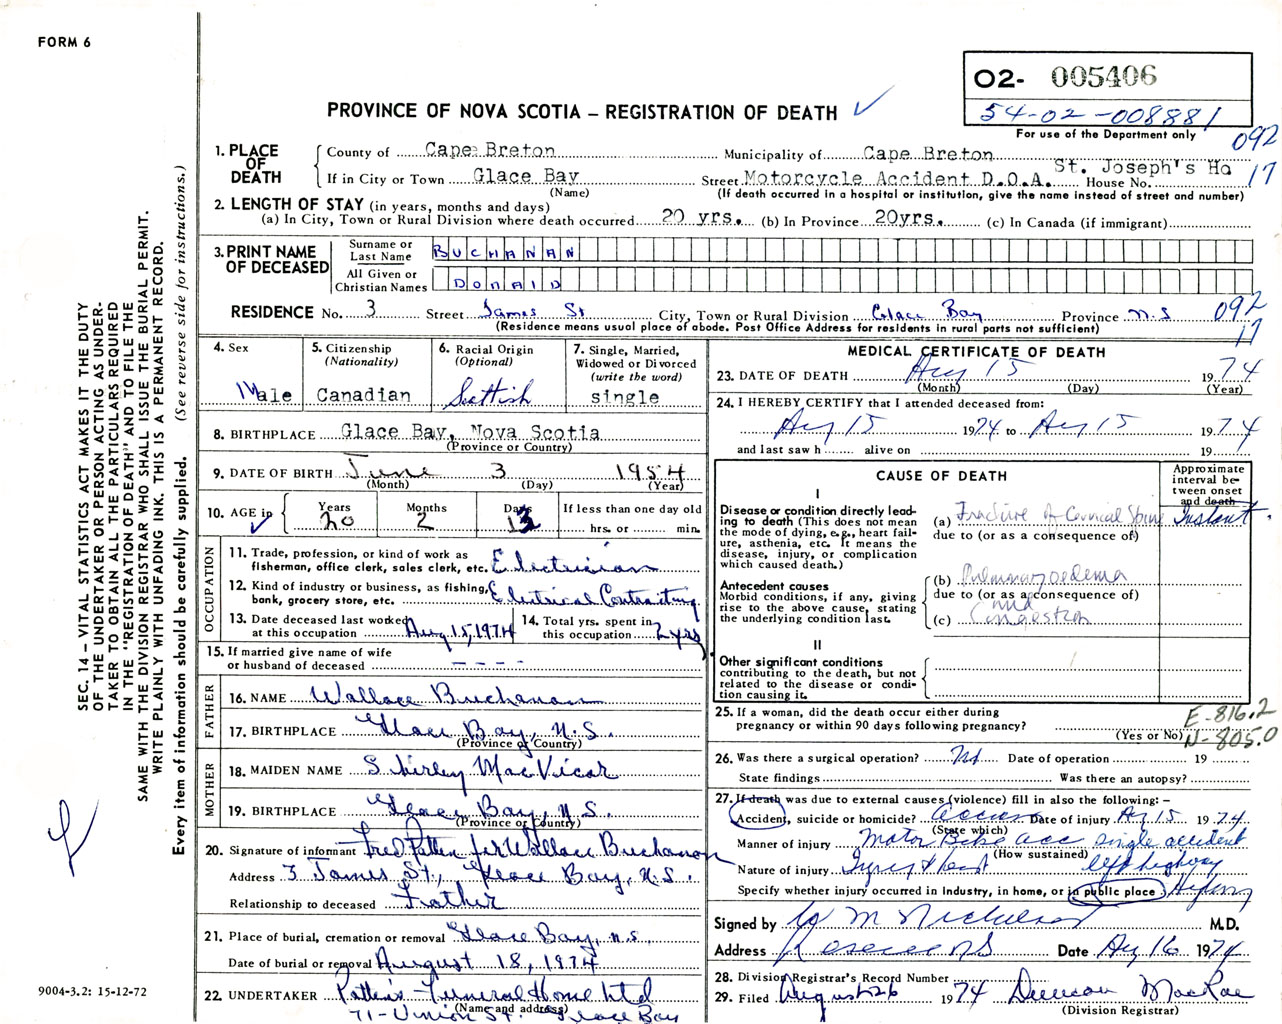 FORM 6
O2- 005406
54-02-008881
For use of the Department only
092
17
PROVINCE OF NOVA SCOTIA – REGISTRATION OF DEATH
1. PLACE OF DEATH
County of Cape Breton Municipality of Cape Breton
If in City or Town Glace Bay Street Motorcycle Accident D.O.A. St. Joseph's Ho House No.
(Name) (If death occurred in a hospital or institution, give the name instead of street and number)
2. LENGTH OF STAY (in years, months and days)
(a) In City, Town or Rural Division where death occurred 20 yrs. (b) In Province 20yrs. (c) In Canada (if immigrant)
3. PRINT NAME OF DECEASED
Surname or Last Name BUCHANAN
All Given or Christian Names DONALD
RESIDENCE No. 3 Street James St City, Town or Rural Division Glace Bay Province N.S
092
17
(Residence means usual place of abode. Post Office Address for residents in rural parts not sufficient)
4. Sex
Male
5. Citizenship (Nationality)
Canadian
6. Racial Origin (Optional)
Scottish
7. Single, Married, Widowed or Divorced (write the word)
single
8. BIRTHPLACE Glace Bay, Nova Scotia
(Province or Country)
9. DATE OF BIRTH June 3 1954
(Month) (Day) (Year)
10. AGE in Years 20 Months 2 Days 13
If less than one day old
hrs. or min.
OCCUPATION
11. Trade, profession, or kind of work as fisherman, office clerk, sales clerk, etc. Electrician
12. Kind of industry or business, as fishing, bank, grocery store, etc. Electrical Contracting
13. Date deceased last worked at this occupation Aug 15, 1974
14. Total yrs. spent in this occupation 2 yrs.
15. If married give name of wife or husband of deceased - - - -
FATHER
16. NAME Wallace Buchanan
17. BIRTHPLACE Glace Bay, N.S.
(Province or Country)
MOTHER
18. MAIDEN NAME Shirley MacVicar
19. BIRTHPLACE Glace Bay, N.S.
(Province or Country)
20. Signature of informant Fred Patten for Wallace Buchanan
Address 3 James St., Glace Bay, N.S.
Relationship to deceased Father
21. Place of burial, cremation or removal Glace Bay, N.S.
Date of burial or removal August 18, 1974
22. UNDERTAKER Patten's Funeral Home Ltd
(Name and address)
71-Union St. Glace Bay
MEDICAL CERTIFICATE OF DEATH
23. DATE OF DEATH Aug 15 1974
(Month) (Day) (Year)
24. I HEREBY CERTIFY that I attended deceased from:
Aug 15 1974 to Aug 15 1974
and last saw h alive on 19
CAUSE OF DEATH
Approximate interval between onset and death
I
Disease or condition directly leading to death (This does not mean the mode of dying, e.g., heart failure, asthenia, etc. It means the disease, injury, or complication which caused death.)
(a) Fracture of Cervical Spine Instant.
due to (or as a consequence of)
Antecedent causes
Morbid conditions, if any, giving rise to the above cause, stating the underlying condition last.
(b) Pulmonary oedema
due to (or as a consequence of)
and
(c) Congestion
II
Other significant conditions contributing to the death, but not related to the disease or condition causing it.
25. If a woman, did the death occur either during pregnancy or within 90 days following pregnancy?
(Yes or No)
E-816.2
N-805.0
26. Was there a surgical operation? No Date of operation 19
State findings Was there an autopsy?
27. If death was due to external causes (violence) fill in also the following: –
Accident, suicide or homicide? Accident Date of injury Aug 15 1974
(State which)
Manner of injury Motor Bike acc single accident
(How sustained)
left highway
Nature of injury
Specify whether injury occurred in industry, in home, or in public place
Signed by M.D.
Address N S Date Aug 16 1974
28. Division Registrar's Record Number
29. Filed August 26 1974 Duncan MacRae
(Division Registrar)
SEC. 14 – VITAL STATISTICS ACT MAKES IT THE DUTY
OF THE UNDERTAKER OR PERSON ACTING AS UNDER-
TAKER TO OBTAIN ALL THE PARTICULARS REQUIRED
IN THE "REGISTRATION OF DEATH" AND TO FILE THE
SAME WITH THE DIVISION REGISTRAR WHO SHALL ISSUE THE BURIAL PERMIT.
WRITE PLAINLY WITH UNFADING INK. THIS IS A PERMANENT RECORD.
Every item of information should be carefully supplied. (See reverse side for instructions.)
9004-3.2: 15-12-72